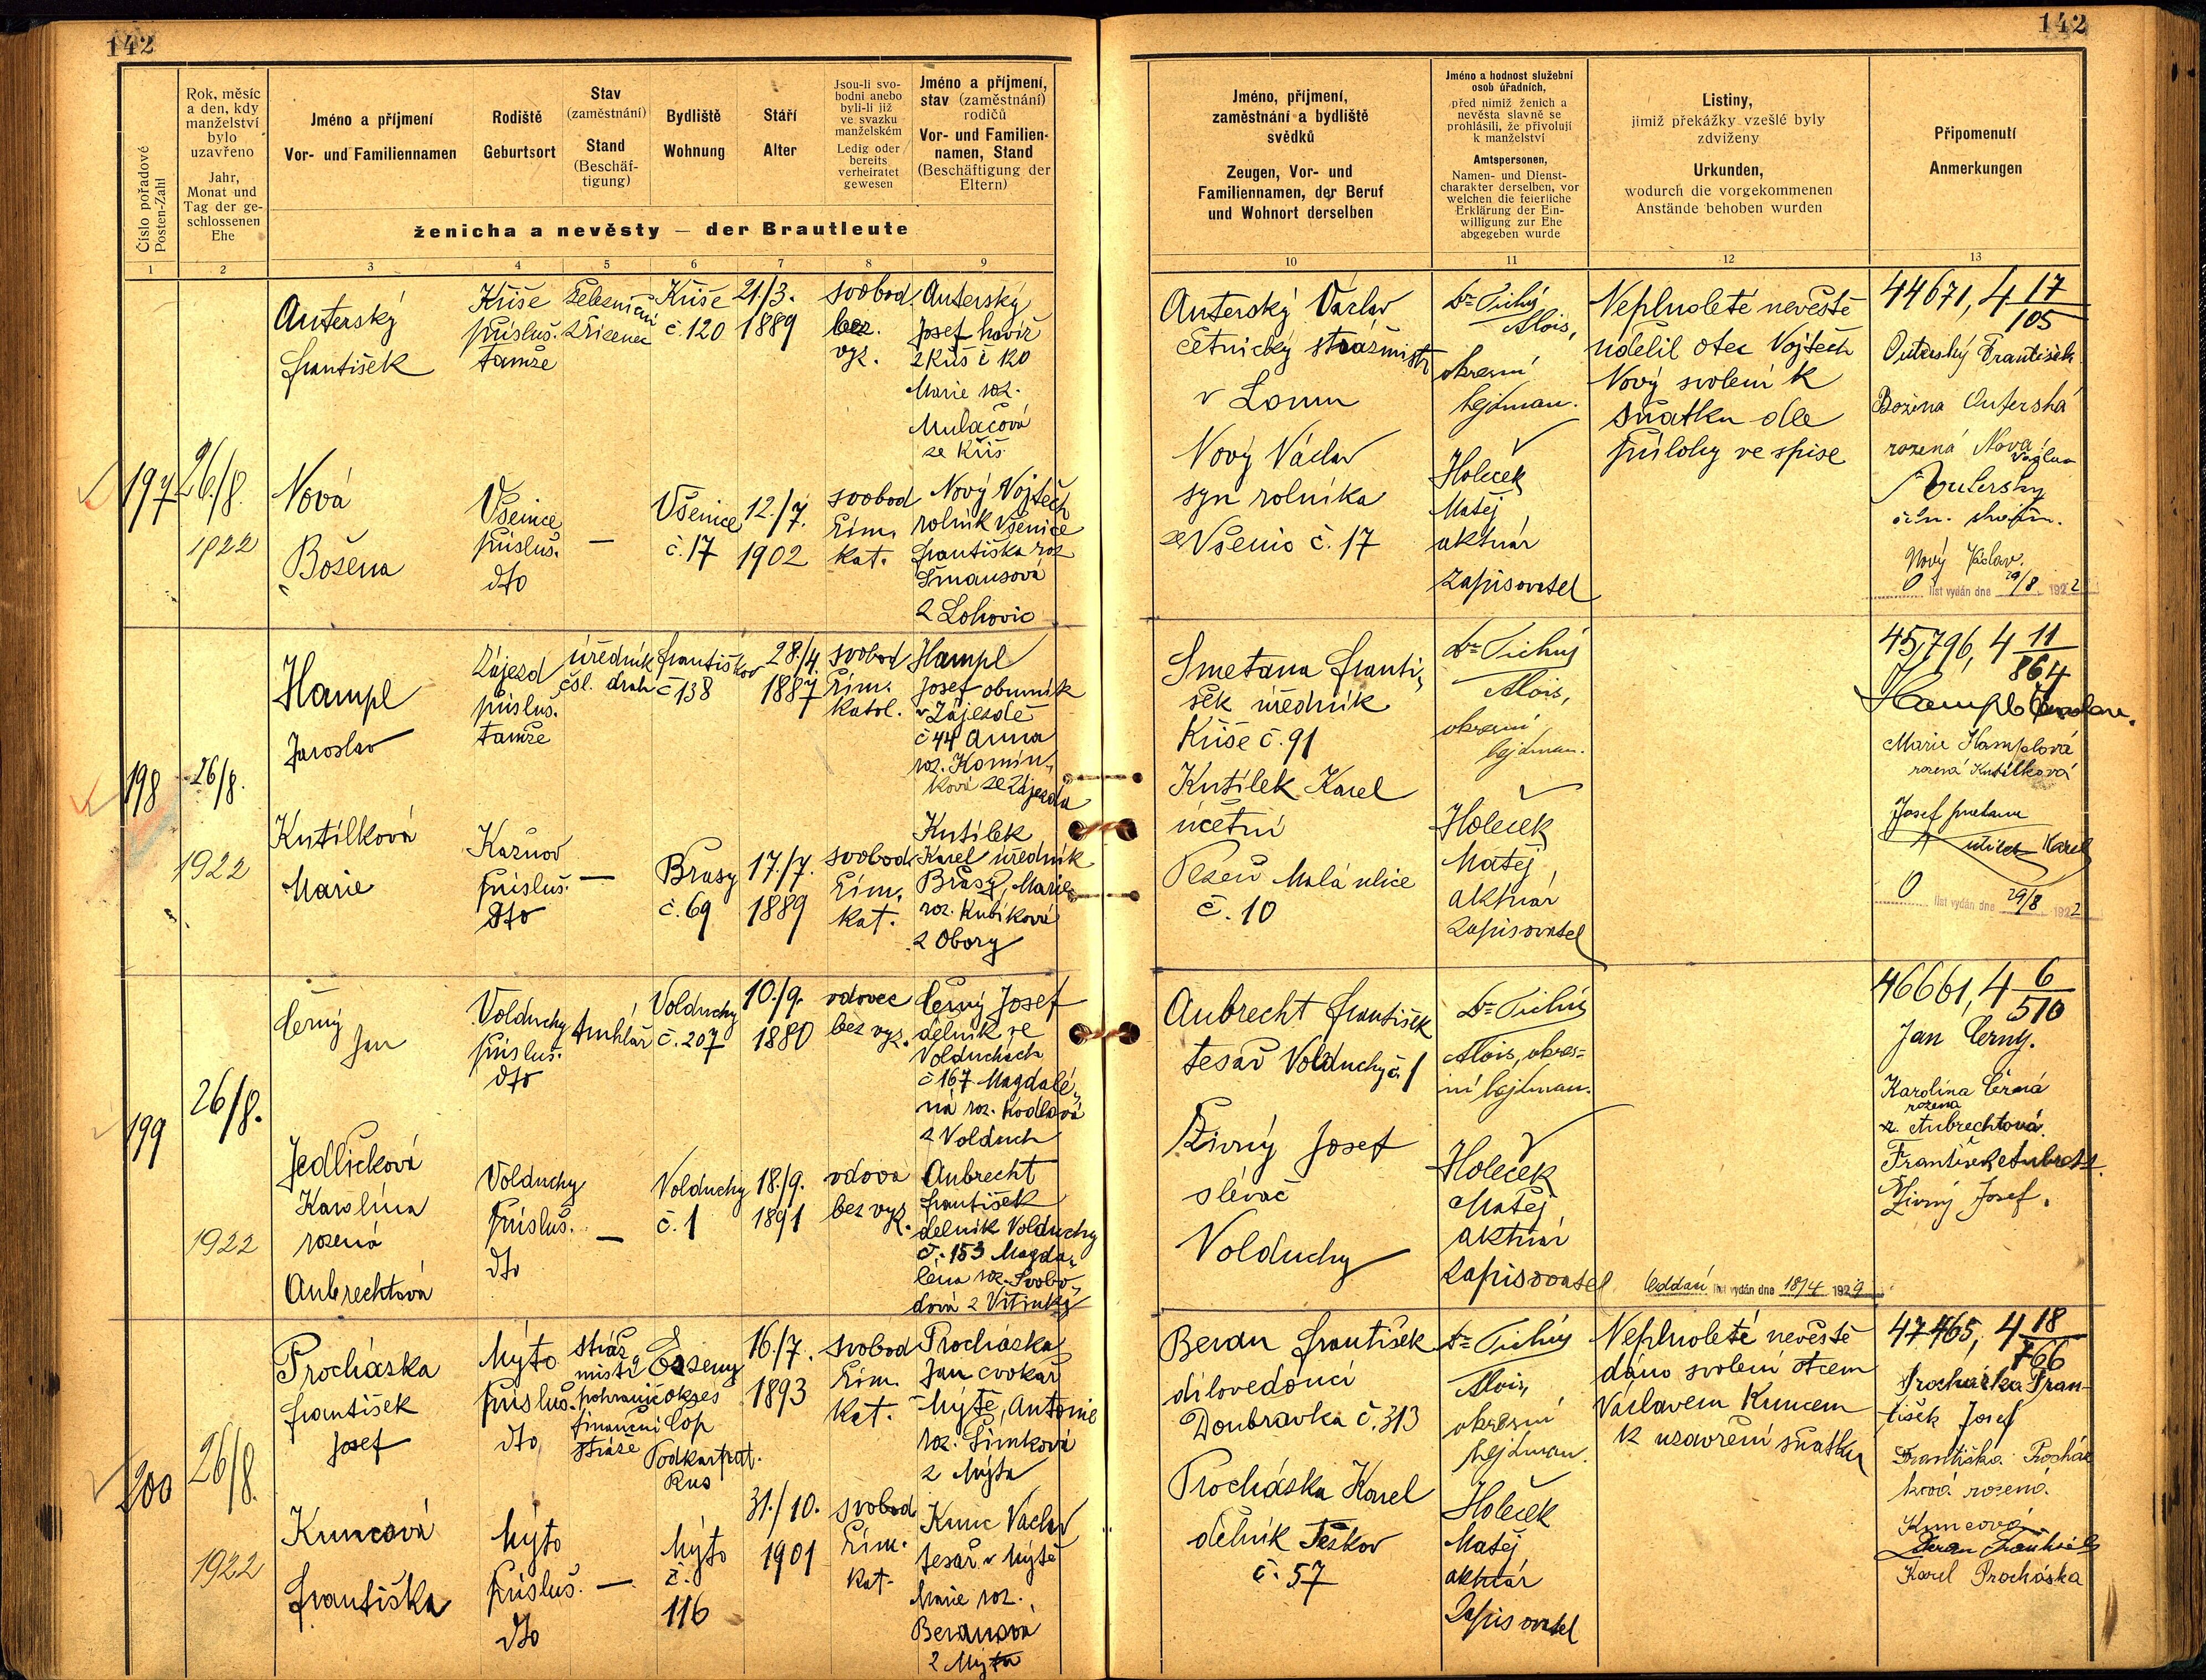 142
142
Číslo pořadové
Posten-Zahl
Rok, měsíc
a den, kdy
manželství
bylo
uzavřeno
Jahr,
Monat und
Tag der ge-
schlossenen
Ehe
Jméno a příjmení
Vor- und Familiennamen
Rodiště
Geburtsort
Stav
(zaměstnání)
Stand
(Beschäf-
tigung)
Bydliště
Wohnung
Stáří
Alter
Jsou-li svo-
bodni anebo
byli-li již
ve svazku
manželském
Ledig oder
bereits
verheiratet
gewesen
Jméno a příjmení,
stav (zaměstnání)
rodičů
Vor- und Familien-
namen, Stand
(Beschäftigung der
Eltern)
ženicha a nevěsty — der Brautleute
Jméno, příjmení,
zaměstnání a bydliště
svědků
Zeugen, Vor- und
Familiennamen, der Beruf
und Wohnort derselben
Jméno a hodnost služební
osob úřadních,
před nimiž ženich a
nevěsta slavně se
prohlásili, že přivolují
k manželství
Amtspersonen,
Namen- und Dienst-
charakter derselben, vor
welchen die feierliche
Erklärung der Ein-
willigung zur Ehe
abgegeben wurde
Listiny,
jimiž překážky vzešlé byly
zdviženy
Urkunden,
wodurch die vorgekommenen
Anstände behoben wurden
Připomenutí
Anmerkungen
1 2 3 4 5 6 7 8 9 10 11 12 13
197
26/8.
1922
Auterský
František
Kříše
přísluš.
tamže
železniční
zřízenec
Kříše
č. 120
21/3.
1889
svobod
bez
vyz.
Auterský
Josef havíř
z Kříš č 120
Marie roz.
Mulačová
ze Kříš
Nová
Božena
Všenice
přísluš.
dto
—
Všenice
č. 17
12/7.
1902
svobod
řím.
kat.
Nový Vojtěch
rolník Všenice
Františka roz
Šmausová
z Lohovic
Auterský Václav
četnický strážmistr
v Lomu
Nový Václav
syn rolníka
ze Všenic č. 17
Dr Tichý
Alois,
okresní
hejtman.
Holeček
Matěj
aktuár
zapisovatel
Neplnoleté nevěstě
udělil otec Vojtěch
Nový svolení k
sňatku dle
přílohy ve spise
44671, 4 17/105
Auterský František
Božena Auterská
rozená Nová
Václav
Auterský
četn.
Nový Václav.
O list vydán dne 29/8 1922
198
26/8.
1922
Hampl
Jaroslav
Zájezd
přísluš.
tamže
úředník
čsl. drah
Františkov
č 138
28./4.
1887
svobod
řím.
katol.
Hampl
Josef obuvník
v Zájezdě
č 44 Anna
roz. Komín-
ková ze Zájezda
Kutílková
Marie
Kaznov
přísluš.
dto
—
Brasy
č. 69
17./7.
1889
svobod
řím.
kat.
Kutílek
Karel úředník
Brasy, Marie
roz. Kubíková
z Obory
Smetana Franti-
šek úředník
Kříše č. 91
Kutílek Karel
účetní
Plzeň Malá ulice
č. 10
Dr Tichý
Alois,
okresní
hejtman.
Holeček
Matěj
aktuár
zapisovatel
45,796, 4 11/864
Hampl Jaroslav.
Marie Hamplová
rozená Kutílková
Josef Smetana
Kutílek Karel
O list vydán dne 29/8 1922
199
26/8.
1922
Černý
Jan
Volduchy
přísluš.
dto
truhlář
Volduchy
č. 207
10./9.
1880
vdovec
bez vyz.
Černý Josef
dělník ve
Volduchách
č 167 Magdalé-
na roz. Kodlová
z Volduch
Jedličková
Karolina
rozená
Aubrechtová
Volduchy
přísluš.
dto
—
Volduchy
č. 1
18./9.
1891
vdova
bez vyz.
Aubrecht
František
dělník Volduchy
č. 153 Magda-
léna roz. Svobo-
dová z Vitinky
Aubrecht František
tesař Volduchy č. 1
Živný Josef
slévač
Volduchy
Dr Tichý
Alois, okres-
ní hejtman.
Holeček
Matěj
aktuár
zapisovatel
Oddací list vydán dne 18/4 1929
46661, 4 6/510
Jan Černý.
Karolina Černá
rozena
Aubrechtová.
František Aubrecht.
Živný Josef.
200
26/8.
1922
Procházka
František
Josef
Mýto
přísluš.
dto
stráž
mistr
pohranič
finanční
stráže
okres
Čop
Podkarpat.
Rus
16/7.
1893
svobod
řím.
kat.
Procházka
Jan cvokař
Mýtě, Antonie
roz. Šimková
z Mýta
Kuncová
Františka
Mýto
přísluš.
dto
—
Mýto
č.
116
31./10.
1901
svobod
řím.
kat.
Kunc Václav
tesař v Mýtě
Marie roz.
Beranová
z Mýta
Beran František
dílovedoucí
Doubravka č. 313
Procházka Karel
dělník Těškov
č. 57
Dr Tichý
Alois,
okresní
hejtman.
Holeček
Matěj
aktuár
Zapisovatel
Neplnoleté nevěstě
dáno svolení otcem
Václavem Kuncem
k uzavření sňatku
47465, 4 18/766
Procházka Fran-
tišek Josef
Františka Procház
ková rozená
Kuncová
Beran František
Karel Procházka